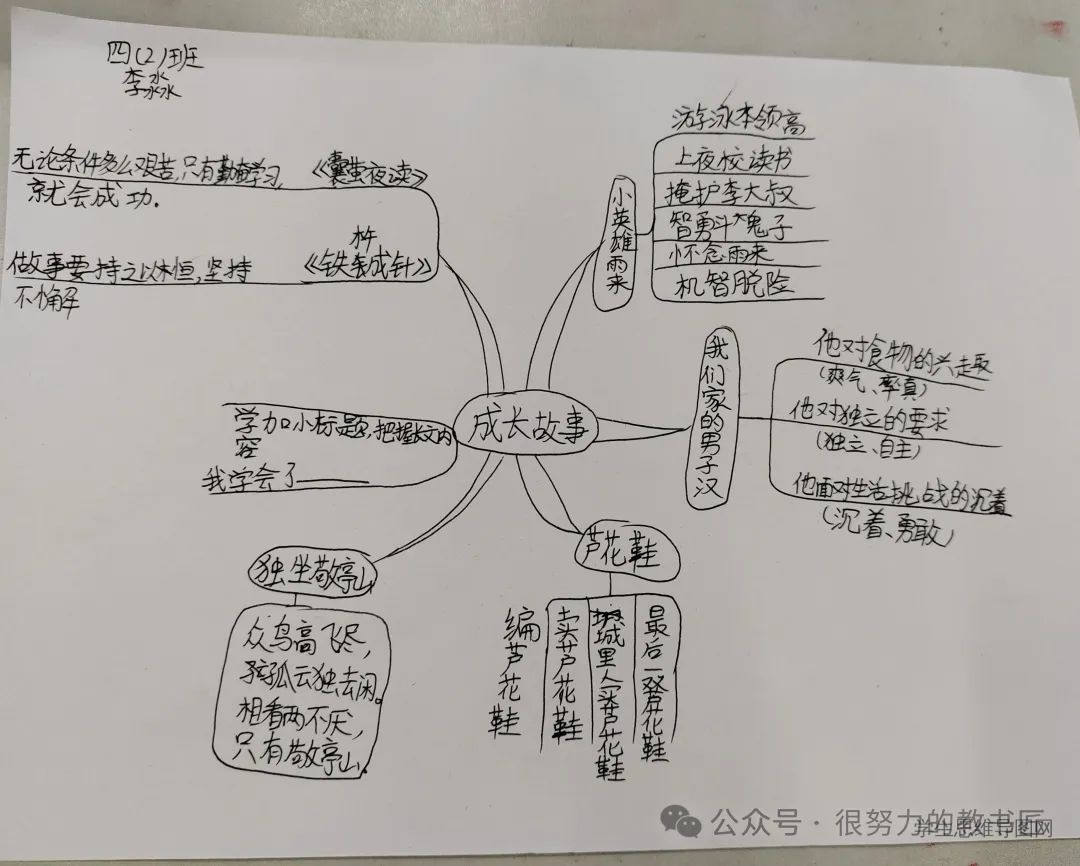 四(2)班
李淼
无论条件多么艰苦,只有勤奋学习,
就会成功.
《囊萤夜读》
做事要持之以恒,坚持
不懈
杵
《铁成针》
学加小标题,把握长文内
容
我学会了——
成长故事
小英雄雨来
游泳本领高
上夜校读书
掩护李大叔
智勇斗鬼子
怀念雨来
机智脱险
我们家的男子汉
他对食物的兴趣
(爽气、率真)
他对独立的要求
(独立、自主)
他面对生活挑战的沉着
(沉着、勇敢)
独坐敬亭山
众鸟高飞尽,
孤云独去闲。
相看两不厌,
只有敬亭山.
芦花鞋
编芦花鞋
卖芦花鞋
城里人买芦花鞋
最后一双花鞋
公众号·很努力的教书匠
学生思维导图网